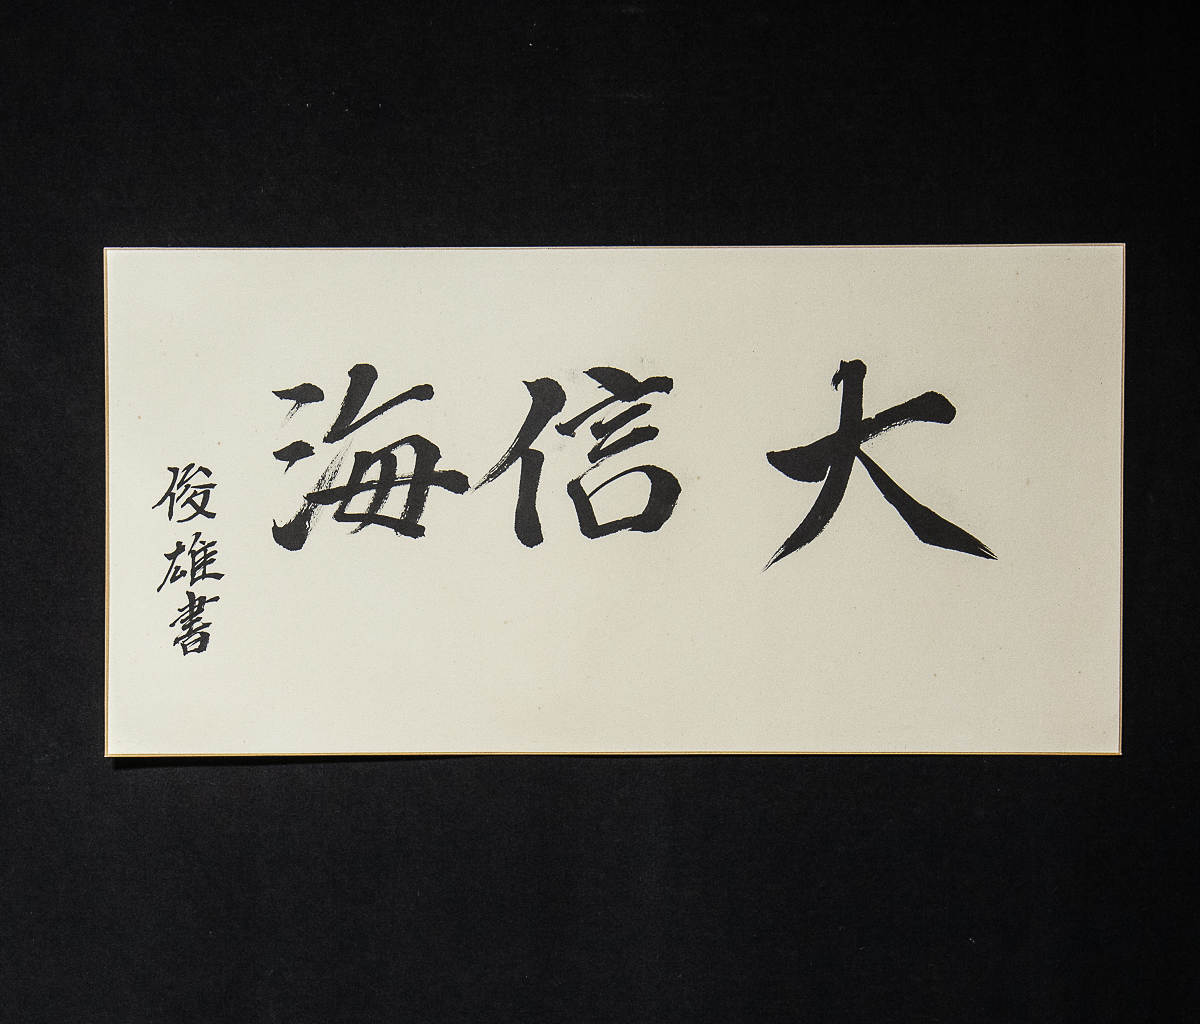 大信海
俊雄書